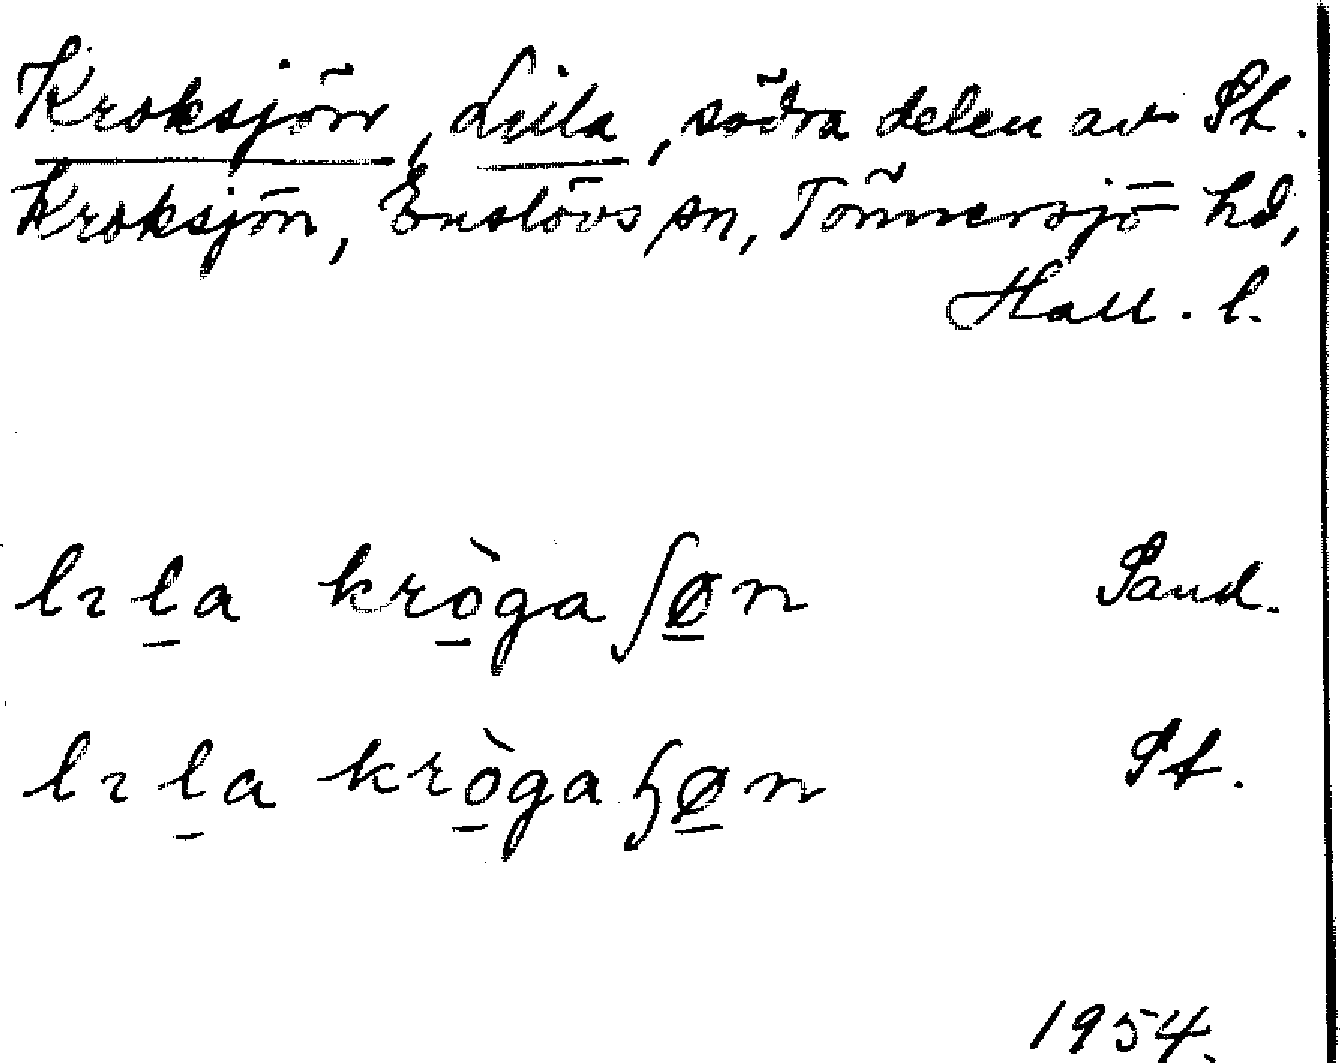 Kroksjön, Lilla, södra delen av St.
Kroksjön, Enslövs sn, Tönnersjö hd,
Hall. l.
lɪl̲a krò̲gaʃø̲n Sand.
lɪl̲a krò̲gaɧø̲n St.
1954.